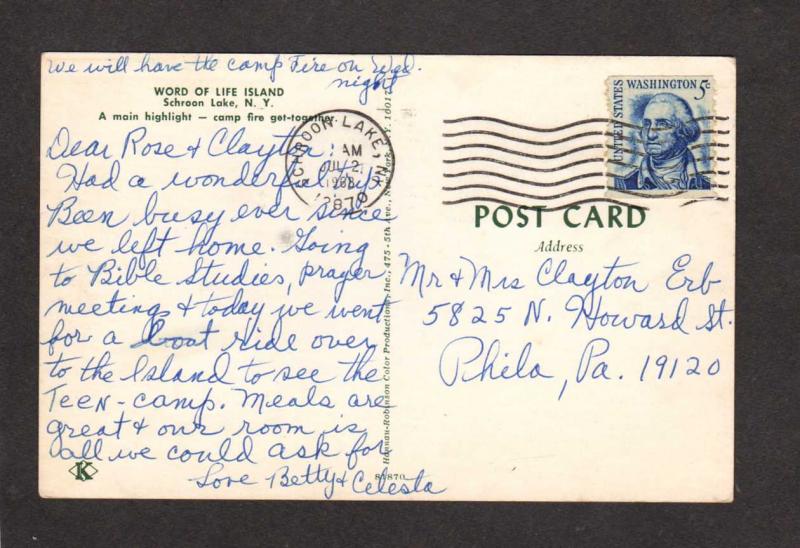 we will have the camp Fire on Wed.
night
WORD OF LIFE ISLAND
Schroon Lake, N. Y.
A main highlight — camp fire get-together
Dear Rose & Clayton:
Had a wonderful trip.
Been busy ever since
we left home. Going
to Bible Studies, prayer
meetings & today we went
for a boat ride over
to the Island to see the
Teen-camp. Meals are
great & our room is
all we could ask for
Love Betty & Celesta
K
81870
Hannau-Robinson Color Productions, Inc., 475 - 5th Ave., New York, N. Y. 10017
SCHROON LAKE, NY
AM
JUL 2
1968
12870
UNITED STATES
WASHINGTON 5c
POST CARD
Address
Mr & Mrs Clayton Erb
5825 N. Howard St.
Phila, Pa. 19120